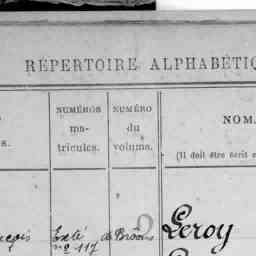 RÉPERTOIRE ALPHABÉTIQ
NUMÉROS
ma-
tricules.
NUMÉRO
du
volume.
NOM
(Il doit être écrit e
s.
nçois
n° 117
de Broons
2
Leroy